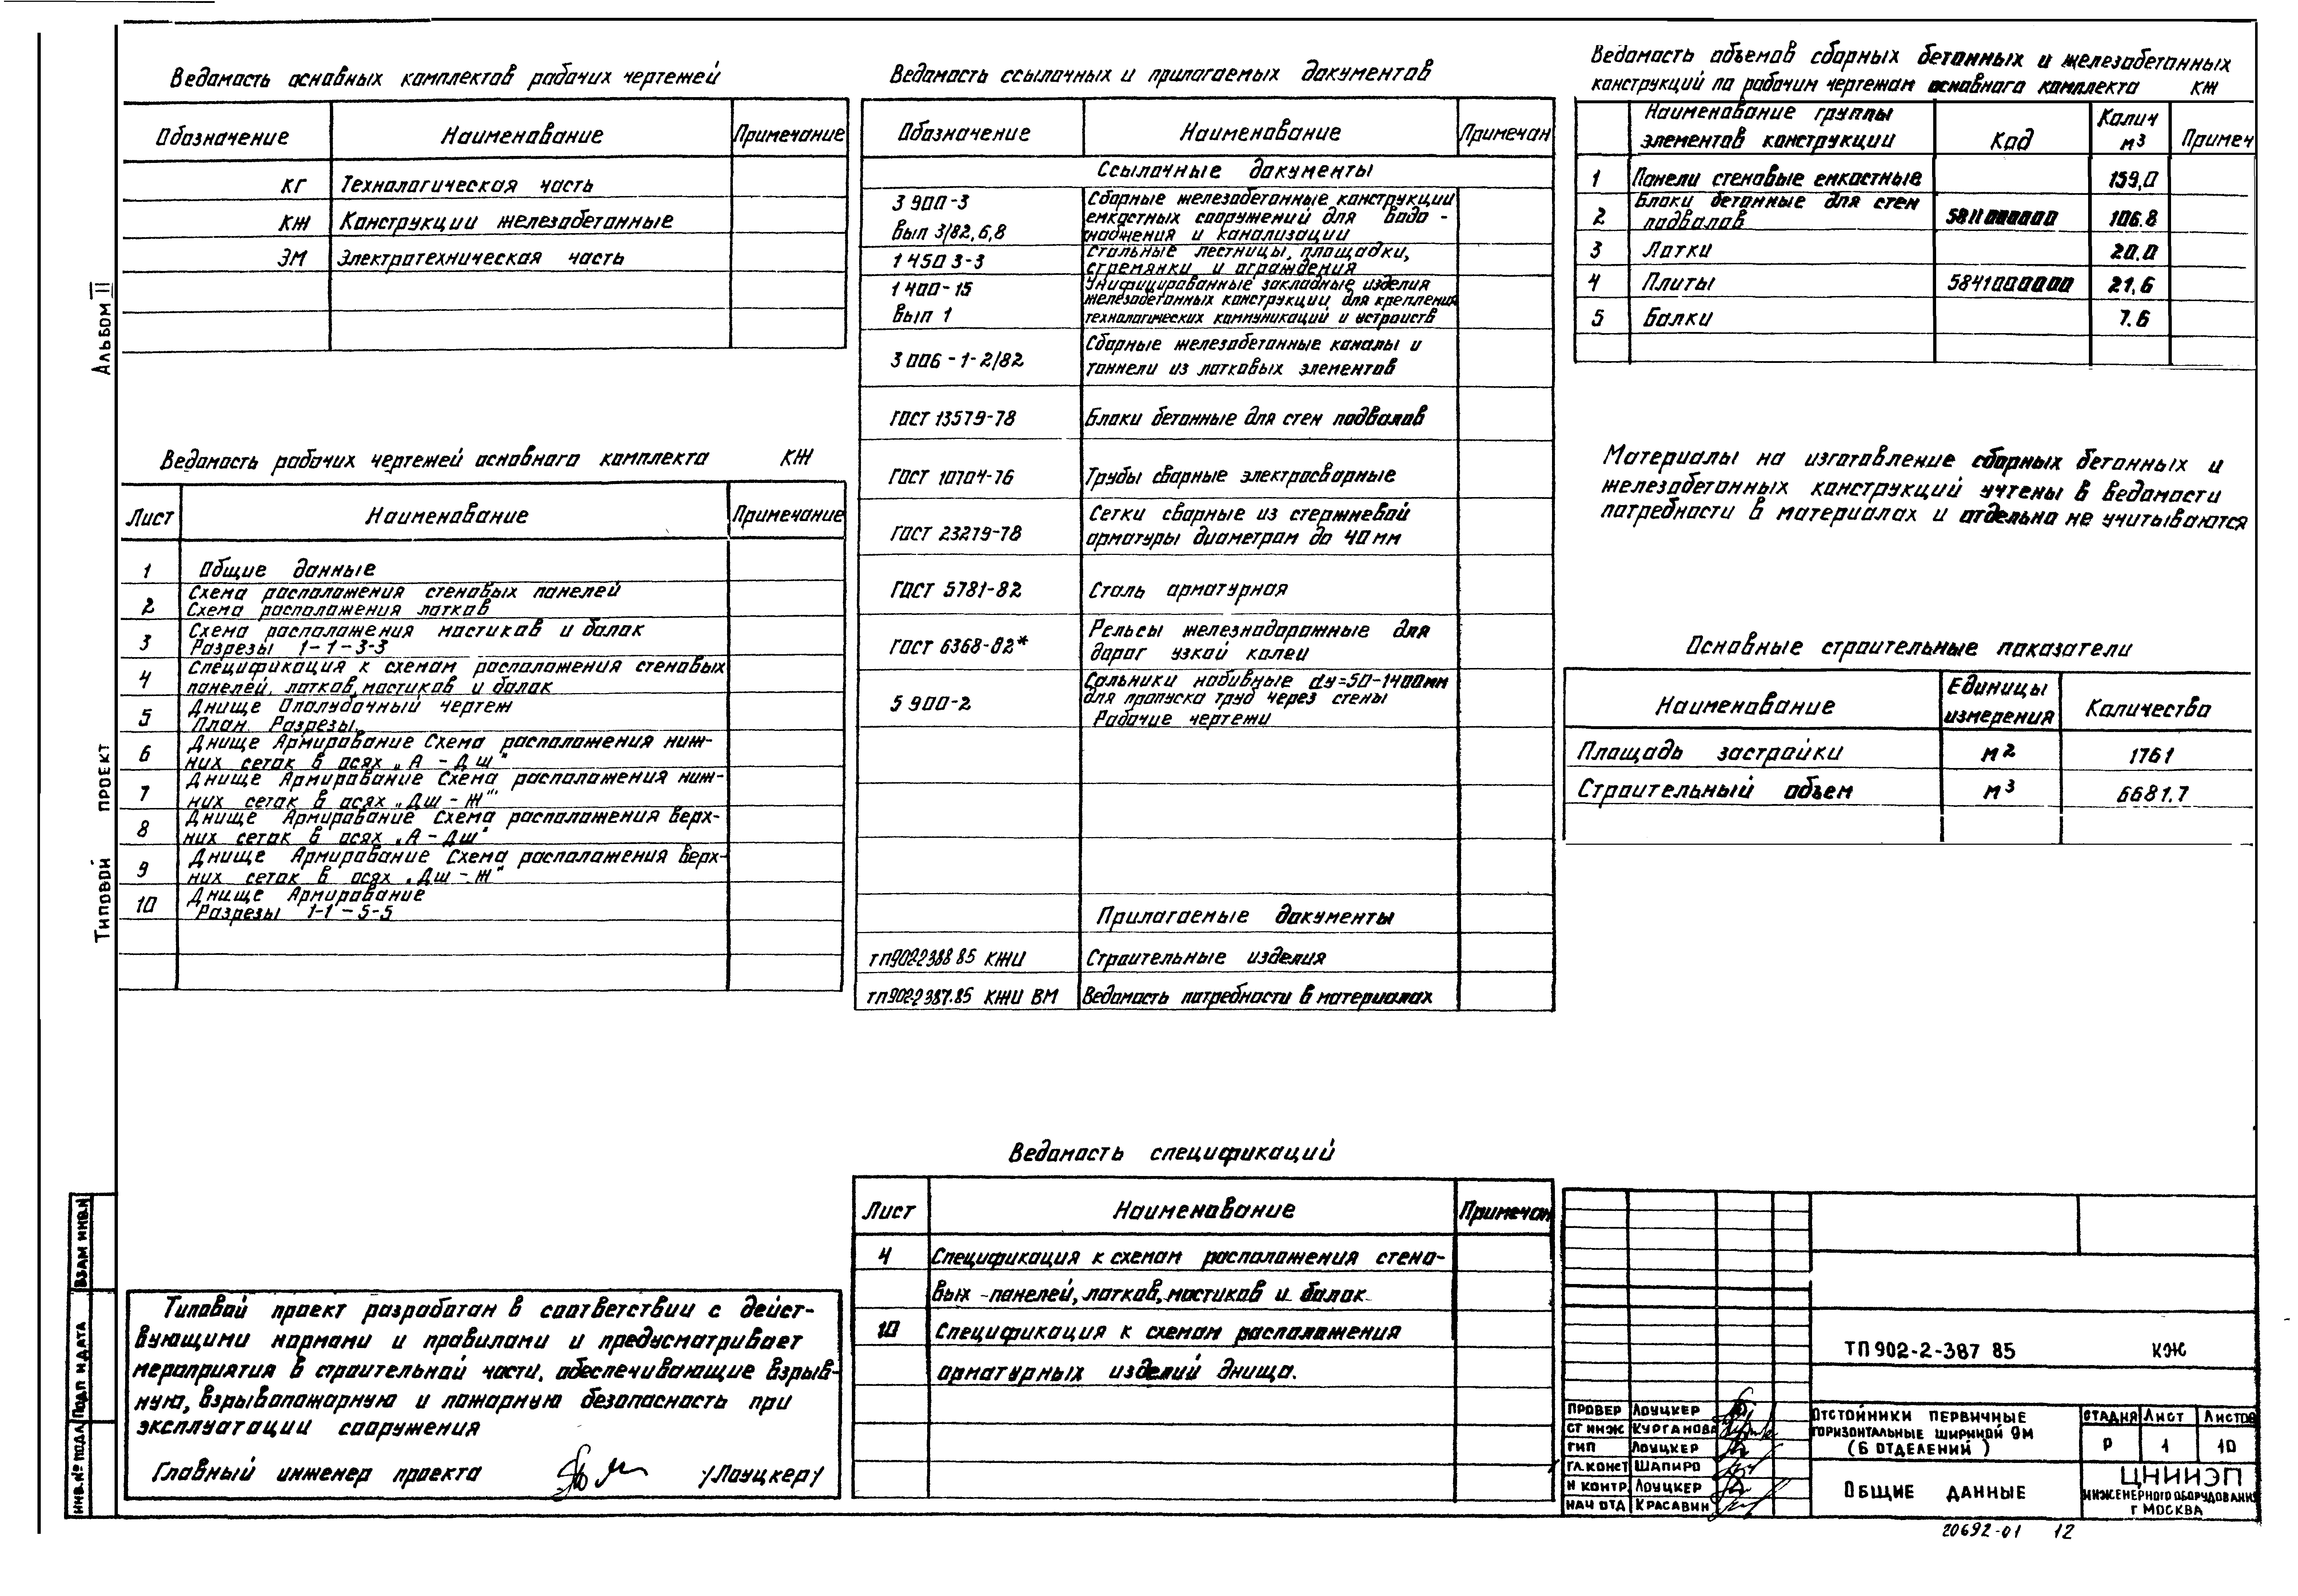 Ведомость основных комплектов рабочих чертежей
Обозначение Наименование Примечание
КГ Технологическая часть
КЖ Конструкции железобетонные
ЭМ Электротехническая часть
Альбом II
Ведомость рабочих чертежей основного комплекта КЖ
Лист Наименование Примечание
1 Общие данные
2 Схема расположения стеновых панелей
Схема расположения лотков
3 Схема расположения мостиков и балок
Разрезы 1-1-3-3
4 Спецификация к схемам расположения стеновых
панелей, лотков, мостиков и балок
5 Днище Опалубочный чертеж
План. Разрезы.
6 Днище Армирование Схема расположения ниж-
них сеток в осях „А - Дш"
7 Днище Армирование Схема расположения ниж-
них сеток в осях „Дш - Ж"
8 Днище Армирование Схема расположения верх-
них сеток в осях „А - Дш"
9 Днище Армирование Схема расположения верх-
них сеток в осях „Дш - Ж"
10 Днище Армирование
Разрезы 1-1 - 5-5
Типовой проект
Ведомость ссылочных и прилагаемых документов
Обозначение Наименование Примечан
Ссылочные документы
3 900-3 Сборные железобетонные конструкции
емкостных сооружений для водо-
Вып 3/82,6,8 снабжения и канализации
1 450 3-3 Стальные лестницы, площадки,
стремянки и ограждения
1 400-15 Унифицированные закладные изделия
железобетонных конструкции для крепления
Вып 1 технологических коммуникаций и устройств
3 006-1-2/82 Сборные железобетонные каналы и
тоннели из лотковых элементов
ГОСТ 13579-78 Блоки бетонные для стен подвалов
ГОСТ 10704-76 Трубы сварные электросварные
ГОСТ 23279-78 Сетки сварные из стержневой
арматуры диаметром до 40 мм
ГОСТ 5781-82 Сталь арматурная
ГОСТ 6368-82* Рельсы железнодорожные для
дорог узкой колеи
5 900-2 Сальники набивные dу=50-1400мм
для пропуска труб через стены
Рабочие чертежи
Прилагаемые документы
ТП902-2 388 85 КЖИ Строительные изделия
ТП902-2 387.85 КЖИ ВМ Ведомость потребности в материалах
Ведомость объемов сборных бетонных и железобетонных
конструкций по рабочим чертежам основного комплекта КЖ
Наименование группы
элементов конструкции Код Колич м3 Примеч
1 Панели стеновые емкостные 159,0
2 Блоки бетонные для стен
подвалов 5811000000 106.8
3 Лотки 20.0
4 Плиты 5841000000 21,6
5 Балки 7.6
Материалы на изготовление сборных бетонных и
железобетонных конструкций учтены в ведомости
потребности в материалах и отдельно не учитываются
Основные строительные показатели
Наименование Единицы измерения Количество
Площадь застройки м2 1761
Строительный объем м3 6681.7
Ведомость спецификаций
Лист Наименование Примечан
4 Спецификация к схемам расположения стено-
вых панелей, лотков, мостиков и балок
10 Спецификация к схемам расположения
арматурных изделий днища.
Типовой проект разработан в соответствии с дейст-
вующими нормами и правилами и предусматривает
мероприятия в строительной части, обеспечивающие взрыв-
ную, взрывопожарную и пожарную безопасность при
эксплуатации сооружения
Главный инженер проекта /Лоуцкер/
Взам инв.N
Подп и дата
Инв.№ подл
ТП 902-2-387 85 КЖ
Провер Лоуцкер
Ст инж Курганова
ГИП Лоуцкер
Гл.конст Шапиро
Н контр. Лоуцкер
Нач отд Красавин
Отстойники первичные
горизонтальные шириной 9м
(6 отделений)
Стадия Лист Листов
Р 1 10
Общие данные
ЦНИИЭП
инженерного оборудования
г Москва
20692-01 12